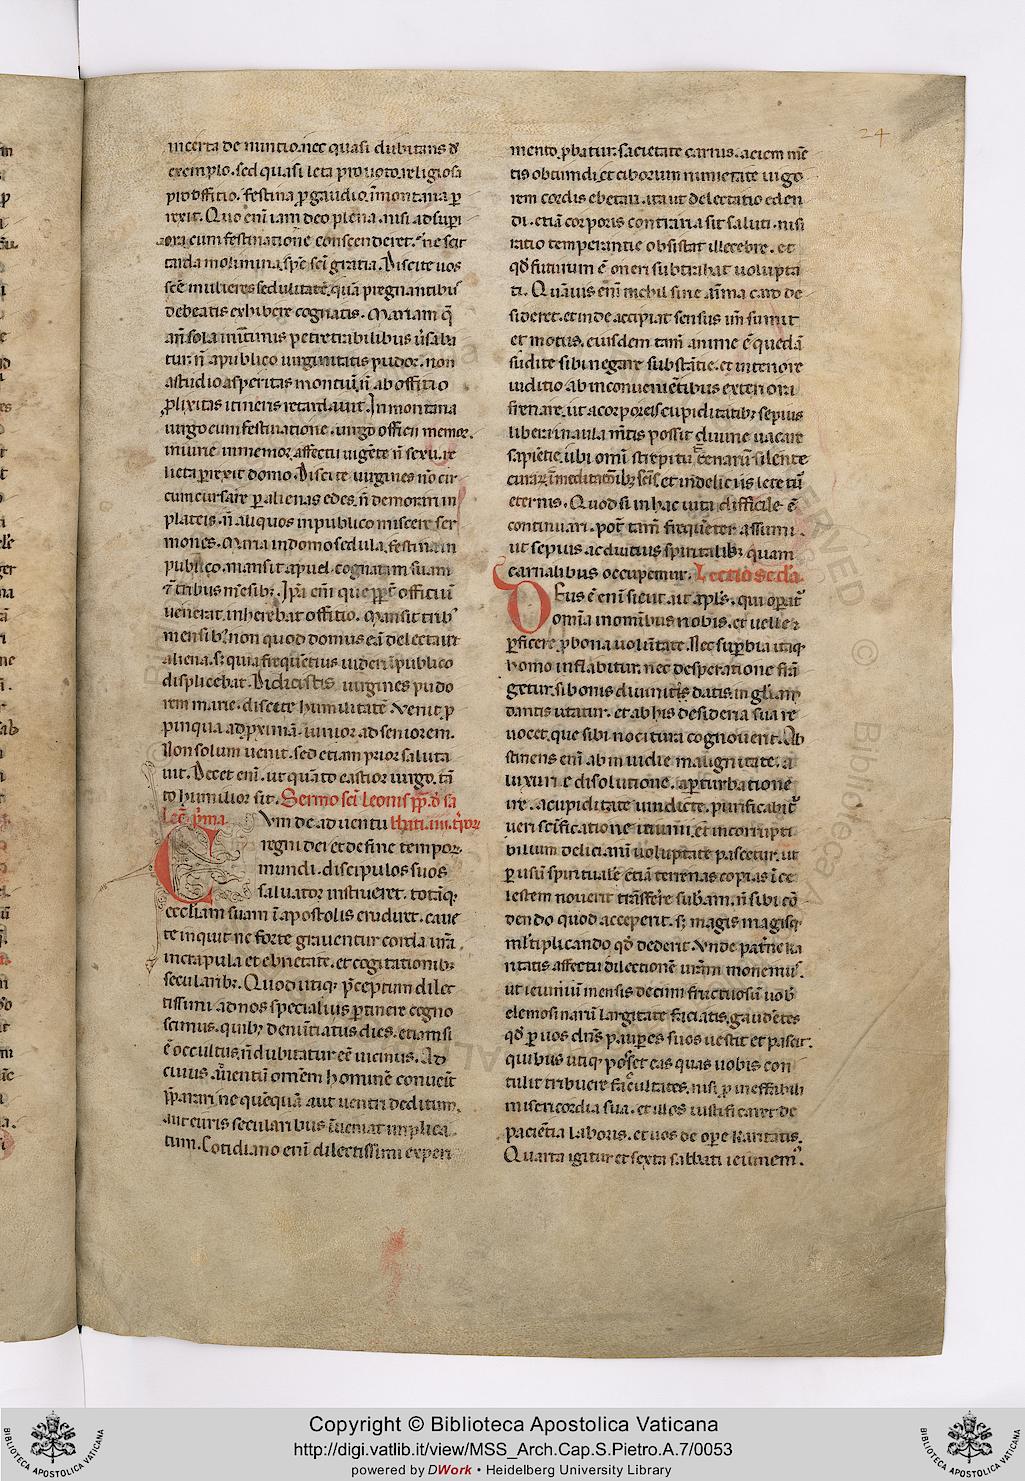 24
incerta de nuntio. nec quasi dubitans de
exemplo. sed quasi leta pro uoto. religiosa
pro offitio. festina p̱ gaudio. ĩ montana ꝑ
rexit. Quo eni͂ iam deo plena. nisi ad supi
ora cum festinatione conscenderet. ne scit
tarda molimina. sp̄c sc̄i gratia. Discite uos
sc̄e mulieres sedulitatē. quā pregnantibus
debeatis exhibere cognatis. Mariam q̄
añ sola
tur. ñ a publico uirginitatis pudor. non
a studio asperitas montiū. ñ ab offitio
ꝓlixitas itineris retardauit. In montana
uirgo cum festinatione. uirgo officii memor.
iniurie inmemor. affectu uigēte ñ sexu. re
licta ꝑrexit domo. Discite uirgines nō cir
cumcursare ꝑ alienas edes. ñ demorari in
plateis. ñ aliquos in publico miscere ser
mones. Maria in domo sedula. festina in
publico. mansit apud cognatam suam
tribus m̄sibꝫ. Ip̄a eni͂ que ꝓpt̄ officiū
uenerat. inherebat offitio. Mansit tribꝰ
mensibꝫ non quod domus eā delectaret
aliena. sꝫ quia frequētius uideri ĩ publico
displicebat. Didicistis uirgines pudo
rem marie. discite humilitatē. Venit ꝓ
pinqua ad ꝓximā. iunior ad seniorem.
Non solum uenit. sed etiam prior saluta
uit. Decet eni͂. ut quāto castior uirgo. tā
to humilior sit. Sermo sc̄i leonis pp̄. d̄ sa
Lec̄. p̄ma.
Vm de aduentu bbati. iiii. tp̄oꝝ
regni dei et de fine tempoꝝ
mundi. discipulos suos
saluator instrueret. totāqꝫ
eccl̄iam suam ĩ apostolis erudiret. caue
te inquit ne forte grauentur corda ur̄a.
in crapula et ebrietate. et cogitationibꝫ
secularibꝫ. Quod utiqꝫ p̄ceptum dilec
tissimi ad nos specialius ꝑtinere cogno
scimus. quibꝫ denūtiatus dies. etiam si
ē occultus. ñ dubitatur eē uicinus. Ad
cuius aduentū om̄em hominē conuenit
p̄parari. ne quēquā aut uentri deditum.
aut curis secularibus ĩueniat implica
tum. Cotidiano eni͂ dilectissimi experi
mento ꝓbatur. sacietate carnis. aciem mē
tis obtundi. et ciborum nimietate uigo
rem cordis ebetari. ita ut delectatio eden
di. etiā corporis contraria sit saluti. nisi
ratio temperantie obsistat illecebre. et
qd̄ futurum ē oneri subtrahat uolupta
ti. Quāuis eni͂ nichil sine aīma caro de
sideret. et inde accipiat sensus uñ sumit
et motus. eiusdem tam̄ anime ē quedā
sudite sibi negare substātie. et interiore
iuditio ab inconueniētibus exteriori
frenare. ut a corporeis cupiditatibꝫ sepius
liberi in aula m̄tis possit diuine uacare
sapietie. ubi omī strepitu terrenarū silente
curaꝝ. ĩ meditatōibꝫ sc̄is. et in deliciis letetur
eternis. Quod si in hac uita difficile ē
continuari. pot̄ tam̄ frequēter assumi.
ut sepius. ac diutius spiritalibꝫ quam
carnalibus occupemur. Lectio sec̄da.
Deus ē eni͂ sicut ait apl̄s. qui operat̄
omīa in omībus nobis. et uelle et
ꝑficere ꝓ bona uolūtate. Nec suꝑbia itaqꝫ
homo inflabitur. nec desperatione frā
getur. si bonis diuinitꝰ datis. in gl̄am
dantis utatur. et ab his desideria sua re
uocet. que sibi nocitura cognouerit. Ab
stinens eni͂ ab inuidie malignitate. a
luxurie disolutione. a ꝑturbatione
ire. a cupiditate uindicte. purificabit̄
ueri sc̄ificatione ieiunii. et incorrupti
bilium delici
ꝑ usū spirituale etiā terrenas copias ĩ ce
lestem nouerit trāsferre sub̄am. ñ sibi cō
dendo quod acceperit. sꝫ magis magisqꝫ
ml̄tiplicando qd̄ dederit. Vnde pat̄ne ka
ritatis affectu dilectionē ur̄am monemus.
ut ieiuniū mensis decimi fructuosū uob̄
elemosinarū largitate faciatis. gaudētes
qd̄ ꝑ uos dn̄s pauꝑes suos uestit et pascit.
quibus utiqꝫ posset eas quas uobis con
tulit tribuere facultates. nisi ꝓ ineffabili
misericordia sua. et illos iustificaret de
pacientia laboris. et uos de oꝑe karitatis.
Quarta igitur et sexta sabbati ieiunemꝰ.
Copyright © Biblioteca Apostolica Vaticana
http://digi.vatlib.it/view/MSS_Arch.Cap.S.Pietro.A.7/0053
powered by DWork • Heidelberg University Library
BIBLIOTECA APOSTOLICA VATICANA
BIBLIOTECA APOSTOLICA VATICANA